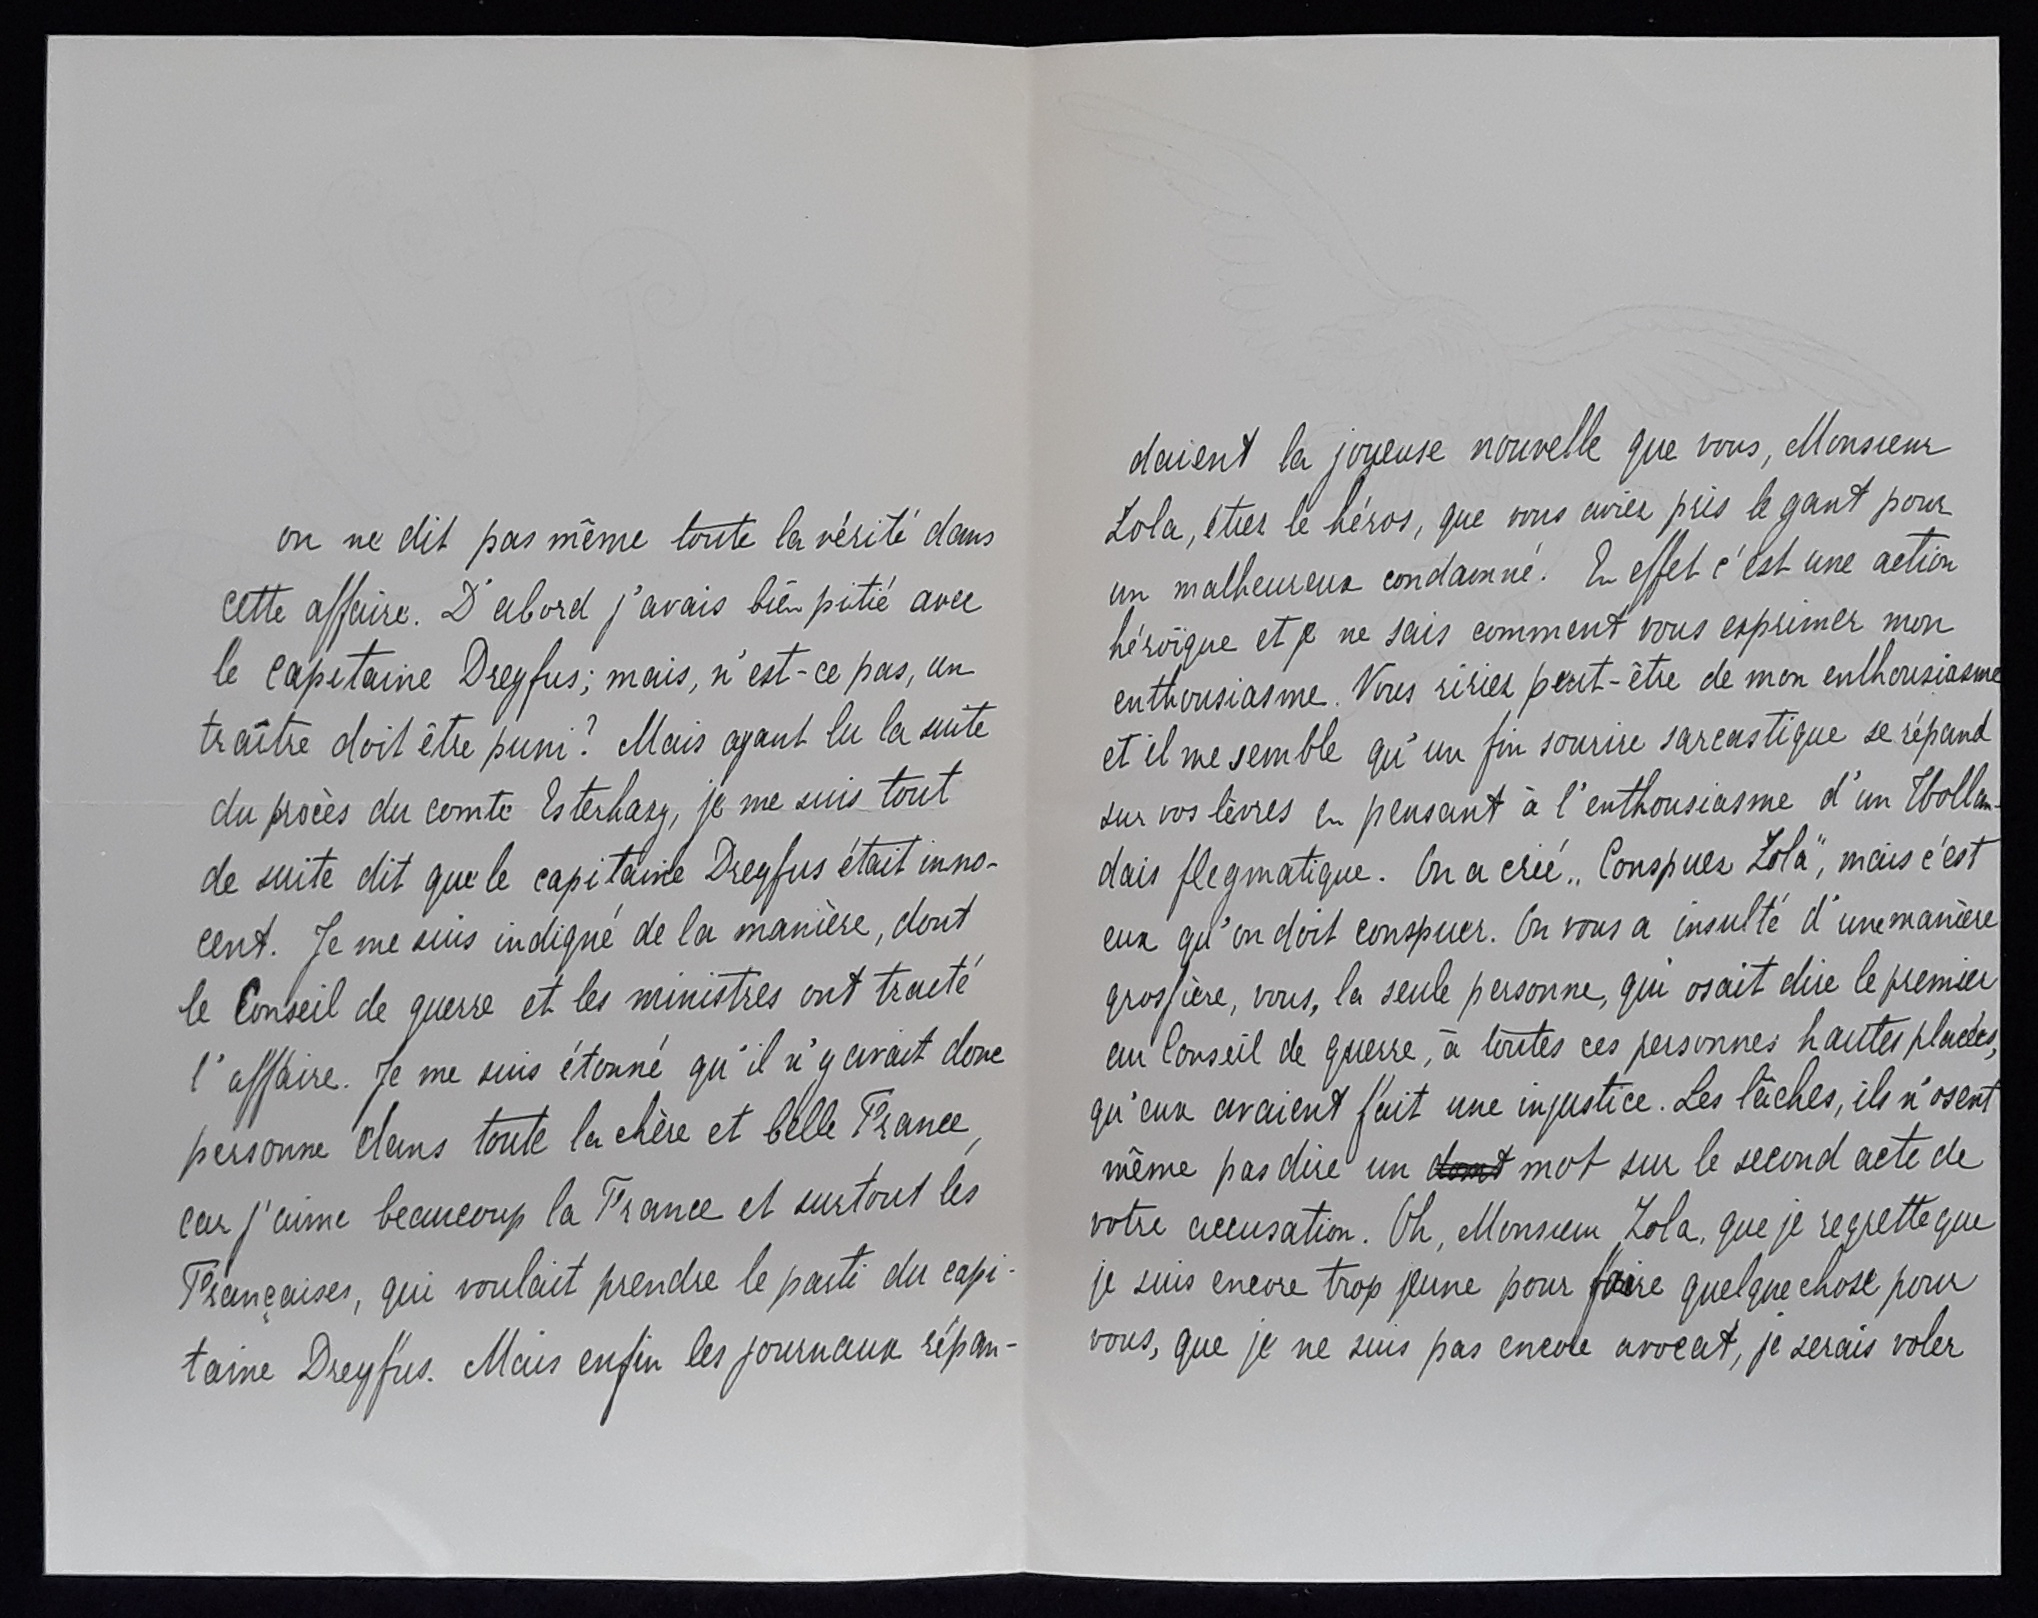 on ne dit pas même toute la vérité dans
cette affaire. D'abord j'avais bien pitié avec
le capitaine Dreyfus; mais, n'est-ce pas, un
traître doit être puni? Mais ayant lu la suite
du procès du comte Esterhazy, je me suis tout
de suite dit que le capitaine Dreyfus était inno-
cent. Je me suis indigné de la manière, dont
le Conseil de guerre et les ministres ont traité
l'affaire. Je me suis étonné qu'il n'y avait donc
personne dans toute la chère et belle France,
car j'aime beaucoup la France et surtout les
Françaises, qui voulait prendre le parti du capi-
taine Dreyfus. Mais enfin les journaux répan-
daient la joyeuse nouvelle que vous, Monsieur
Zola, étiez le héros, que vous aviez pris le gant pour
un malheureux condamné. En effet c'est une action
héroïque et je ne sais comment vous exprimer mon
enthousiasme. Vous ririez peut-être de mon enthousiasme
et il me semble qu'un fin sourire sarcastique se répand
sur vos lèvres en pensant à l'enthousiasme d'un Hollan-
dais flegmatique. On a crié „Conspuez Zola", mais c'est
eux qu'on doit conspuer. On vous a insulté d'une manière
grossière, vous, la seule personne, qui osait dire le premier
au Conseil de guerre, à toutes ces personnes hautes placées,
qu'eux avaient fait une injustice. Les lâches, ils n'osent
même pas dire un dont mot sur le second acte de
votre accusation. Oh, Monsieur Zola, que je regrette que
je suis encore trop jeune pour faire quelque chose pour
vous, que je ne suis pas encore avocat, je serais voler